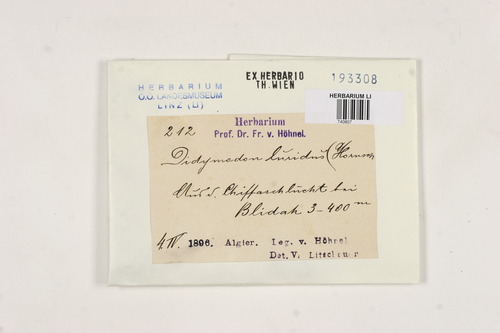 EX HERBARIO
TH. WIEN
193308
HERBARIUM
O.Ö. LANDESMUSEUM
LINZ (LI)
HERBARIUM LI
Herbarium
Prof. Dr. Fr. v. Höhnel.
212
Didymodon luridus (Hornsch
Aus d. Chiffaschlucht bei
Blidah 3-400 m
4. IV. 1896. Algier. Leg. v. Höhnel
Det. V. Litschauer